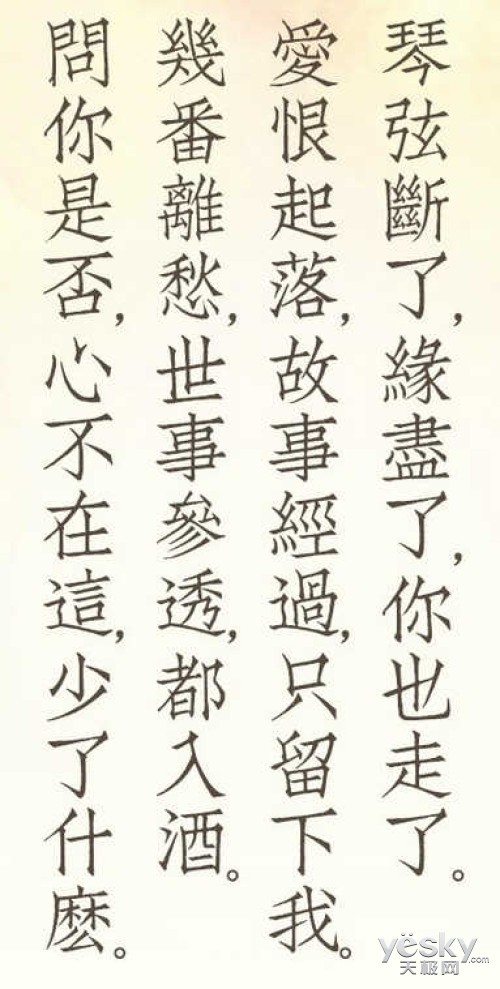 琴弦斷了,緣盡了,你也走了。
愛恨起落,故事經過,只留下我。
幾番離愁,世事參透,都入酒。
問你是否,心不在這,少了什麽。
yesky.com
天极网